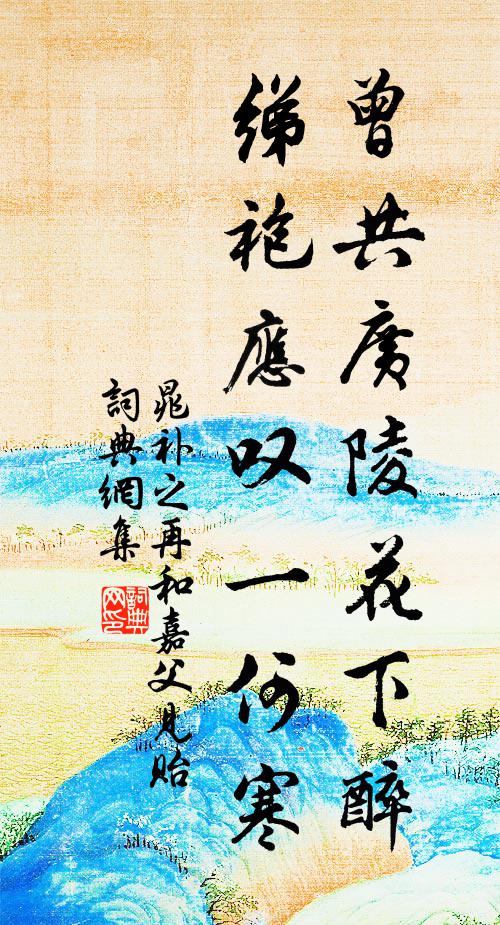 曾共广陵花下醉
绨袍應叹一何寒
晁补之再和嘉父見貽
詞典網集
詞典网印